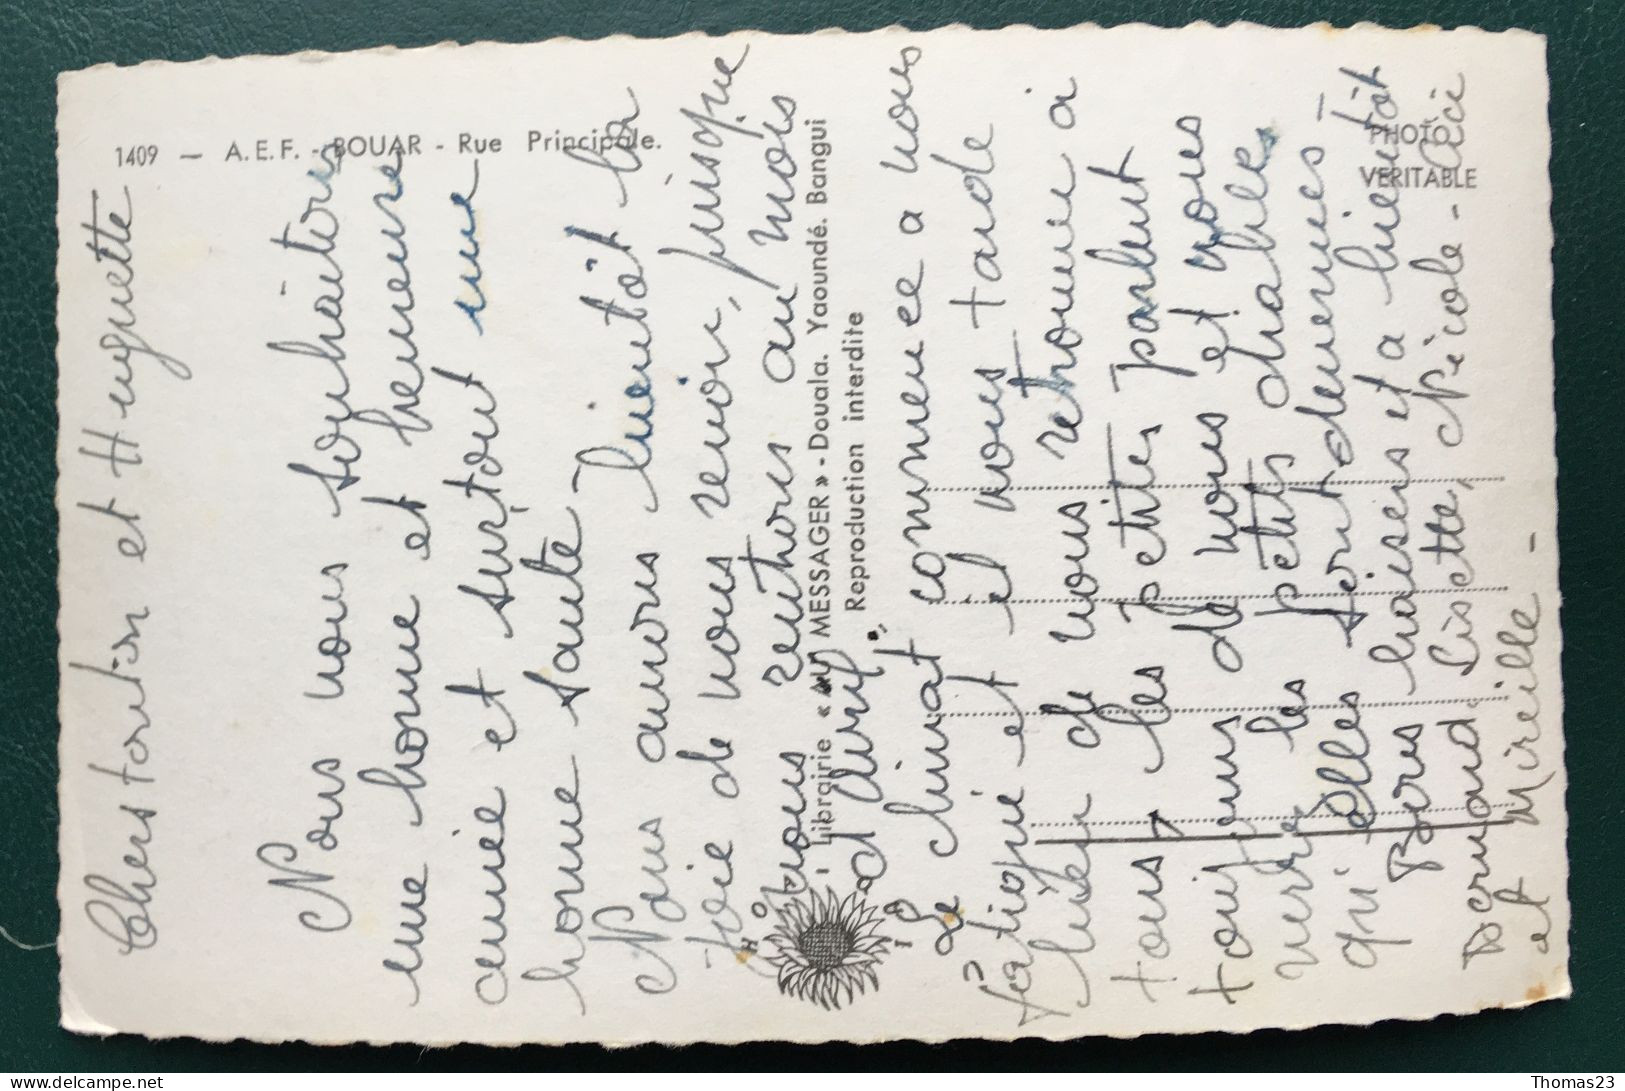 1409 — A.E.F. - BOUAR - Rue Principale.
PHOTO
VERITABLE
Librairie « AU MESSAGER » - Douala. Yaoundé. Bangui
Reproduction interdite
Chers tonton et Huguette
Nous vous souhaitons
une bonne et heureuse
année et surtout une
bonne santé -
Nous aurons bientôt la
joie de vous revoir, puisque
nous rentrons au mois
d'Avril.
Le climat commence a nous
fatiguer et il nous tarde
bien de vous retrouver
tous, les petites parlent
toujours de vous et vous
verrez les petits diables
qu'elles sont devenues -
Bons baisers et a bientôt
Bernard Lisette, Nicole - Cici
et Mireille -
delcampe.net
Thomas23